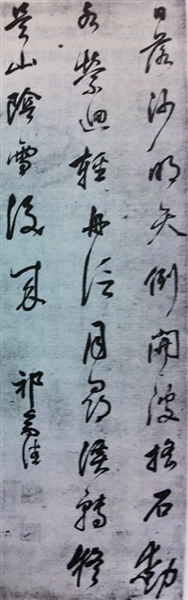 日落沙明天倒開波搖石動
水縈迴輕舟信月尋溪轉疑
是山陰雪後來
祁豸佳